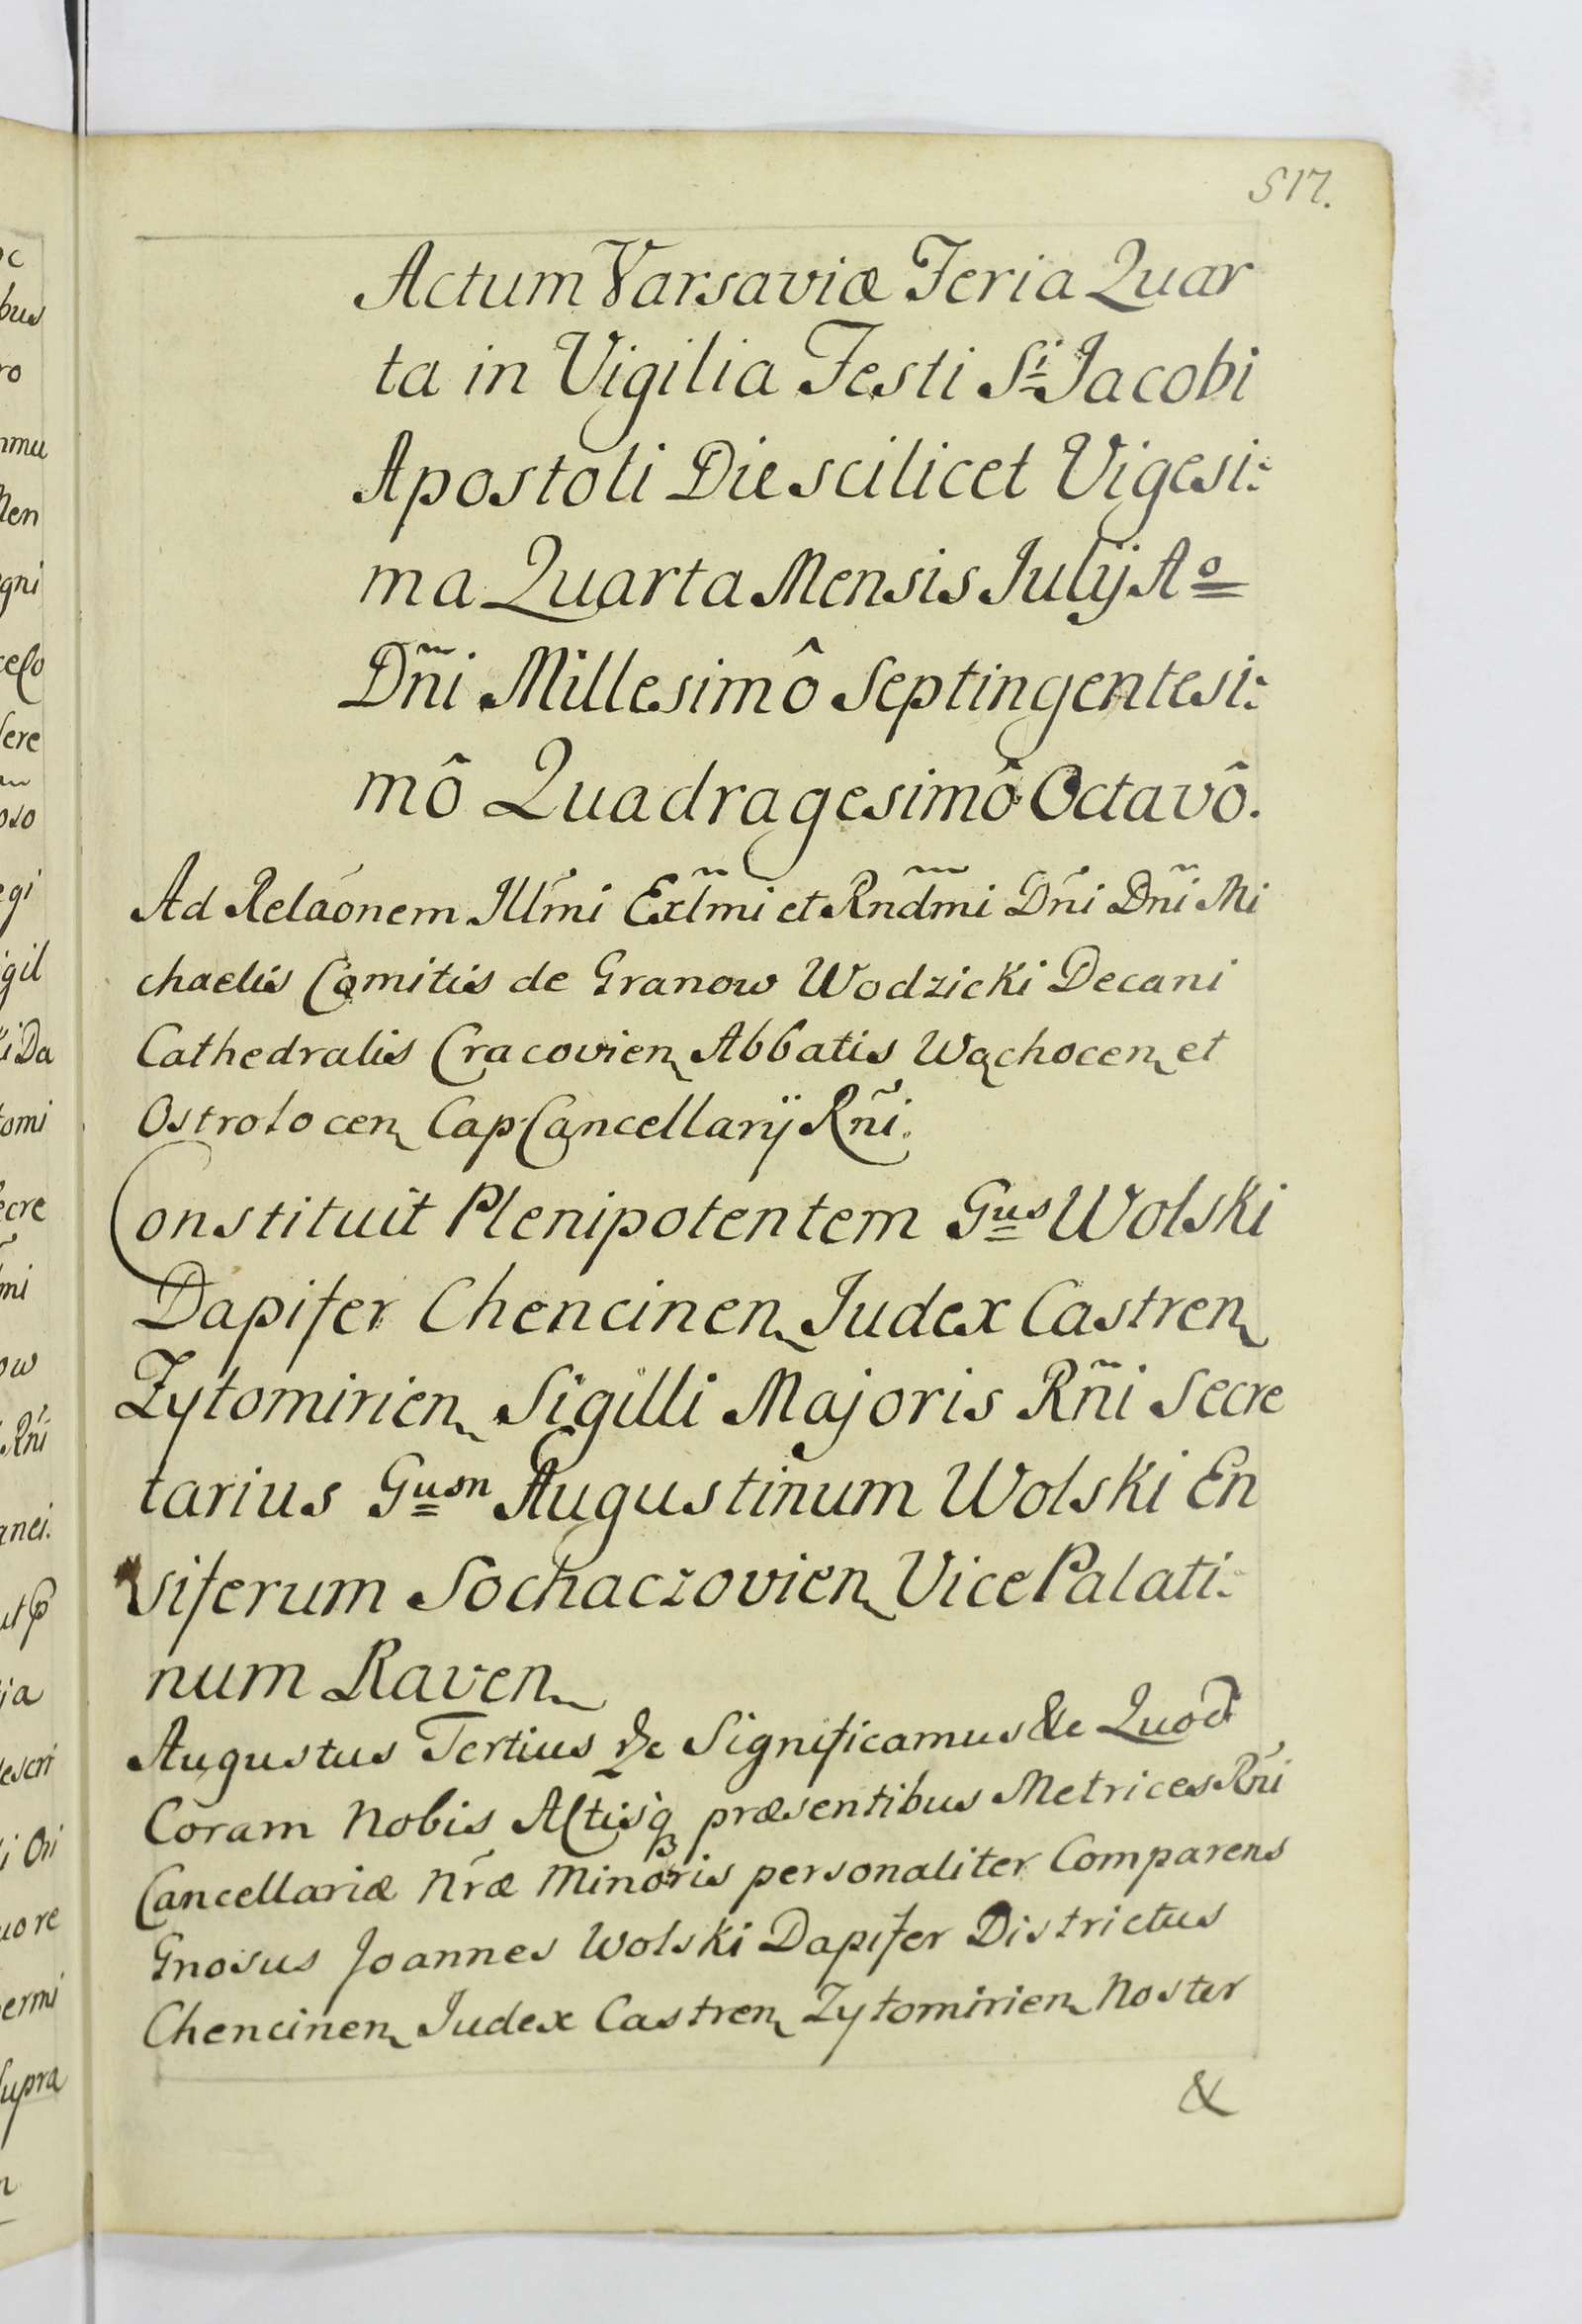 517.
Actum Varsaviæ Feria Quar
ta in Vigilia Festi Sⁱ Jacobi
Apostoli Die scilicet Vigesi:
ma Quarta Mensis Julij Aº
Dñi Millesimô Septingentesi:
mô Quadragesimô Octavô.
Ad Relãonem Illm̃i Exl̃mi et Rnd̃mi Dñi Dñi Mi
chaelis Comitis de Granow Wodzicki Decani
Cathedralis Cracovien Abbatis Wąchocen et
Ostrolocen Cap Cancellarij Rñi.
Constituit Plenipotentem Gᵘˢ Wolski
Dapifer Chencinen Judex Castren
Zytomirien Sigilli Majoris Rñi Secre
tarius Gᵘᵐ Augustinum Wolski En
siferum Sochaczovien Vice Palati:
num Raven
Augustus Tertius &c Significamus &c Quod
Coram Nobis Actisq præsentibus Metrices Rñi
Cancellariæ Nr̃æ Minoris personaliter Comparens
Gnosus Joannes Wolski Dapifer Districtus
Chencinen Judex Castren Zytomirien Noster
&